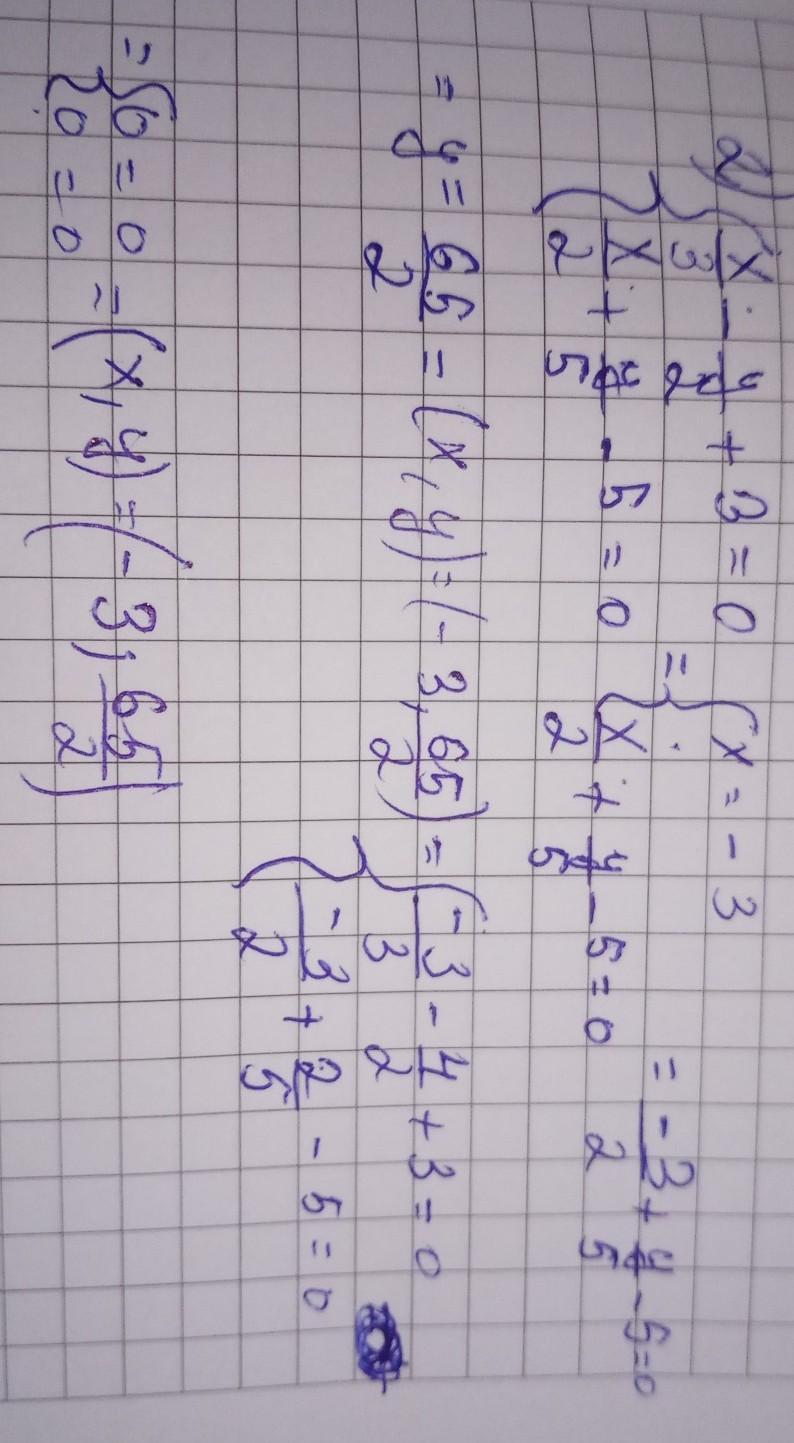 2) { x/3 - y/2 + 3 = 0 = { x = - 3
{ x/2 + y/5 - 5 = 0 { x/2 + y/5 - 5 = 0 = -3/2 + y/5 - 5 = 0
= y = 65/2 = (x, y) = (- 3, 65/2) = { -3/3 - 4/2 + 3 = 0
{ -3/2 + 2/5 - 5 = 0
= { 0 = 0 = (x, y) = (- 3, 65/2)
{ 0 = 0